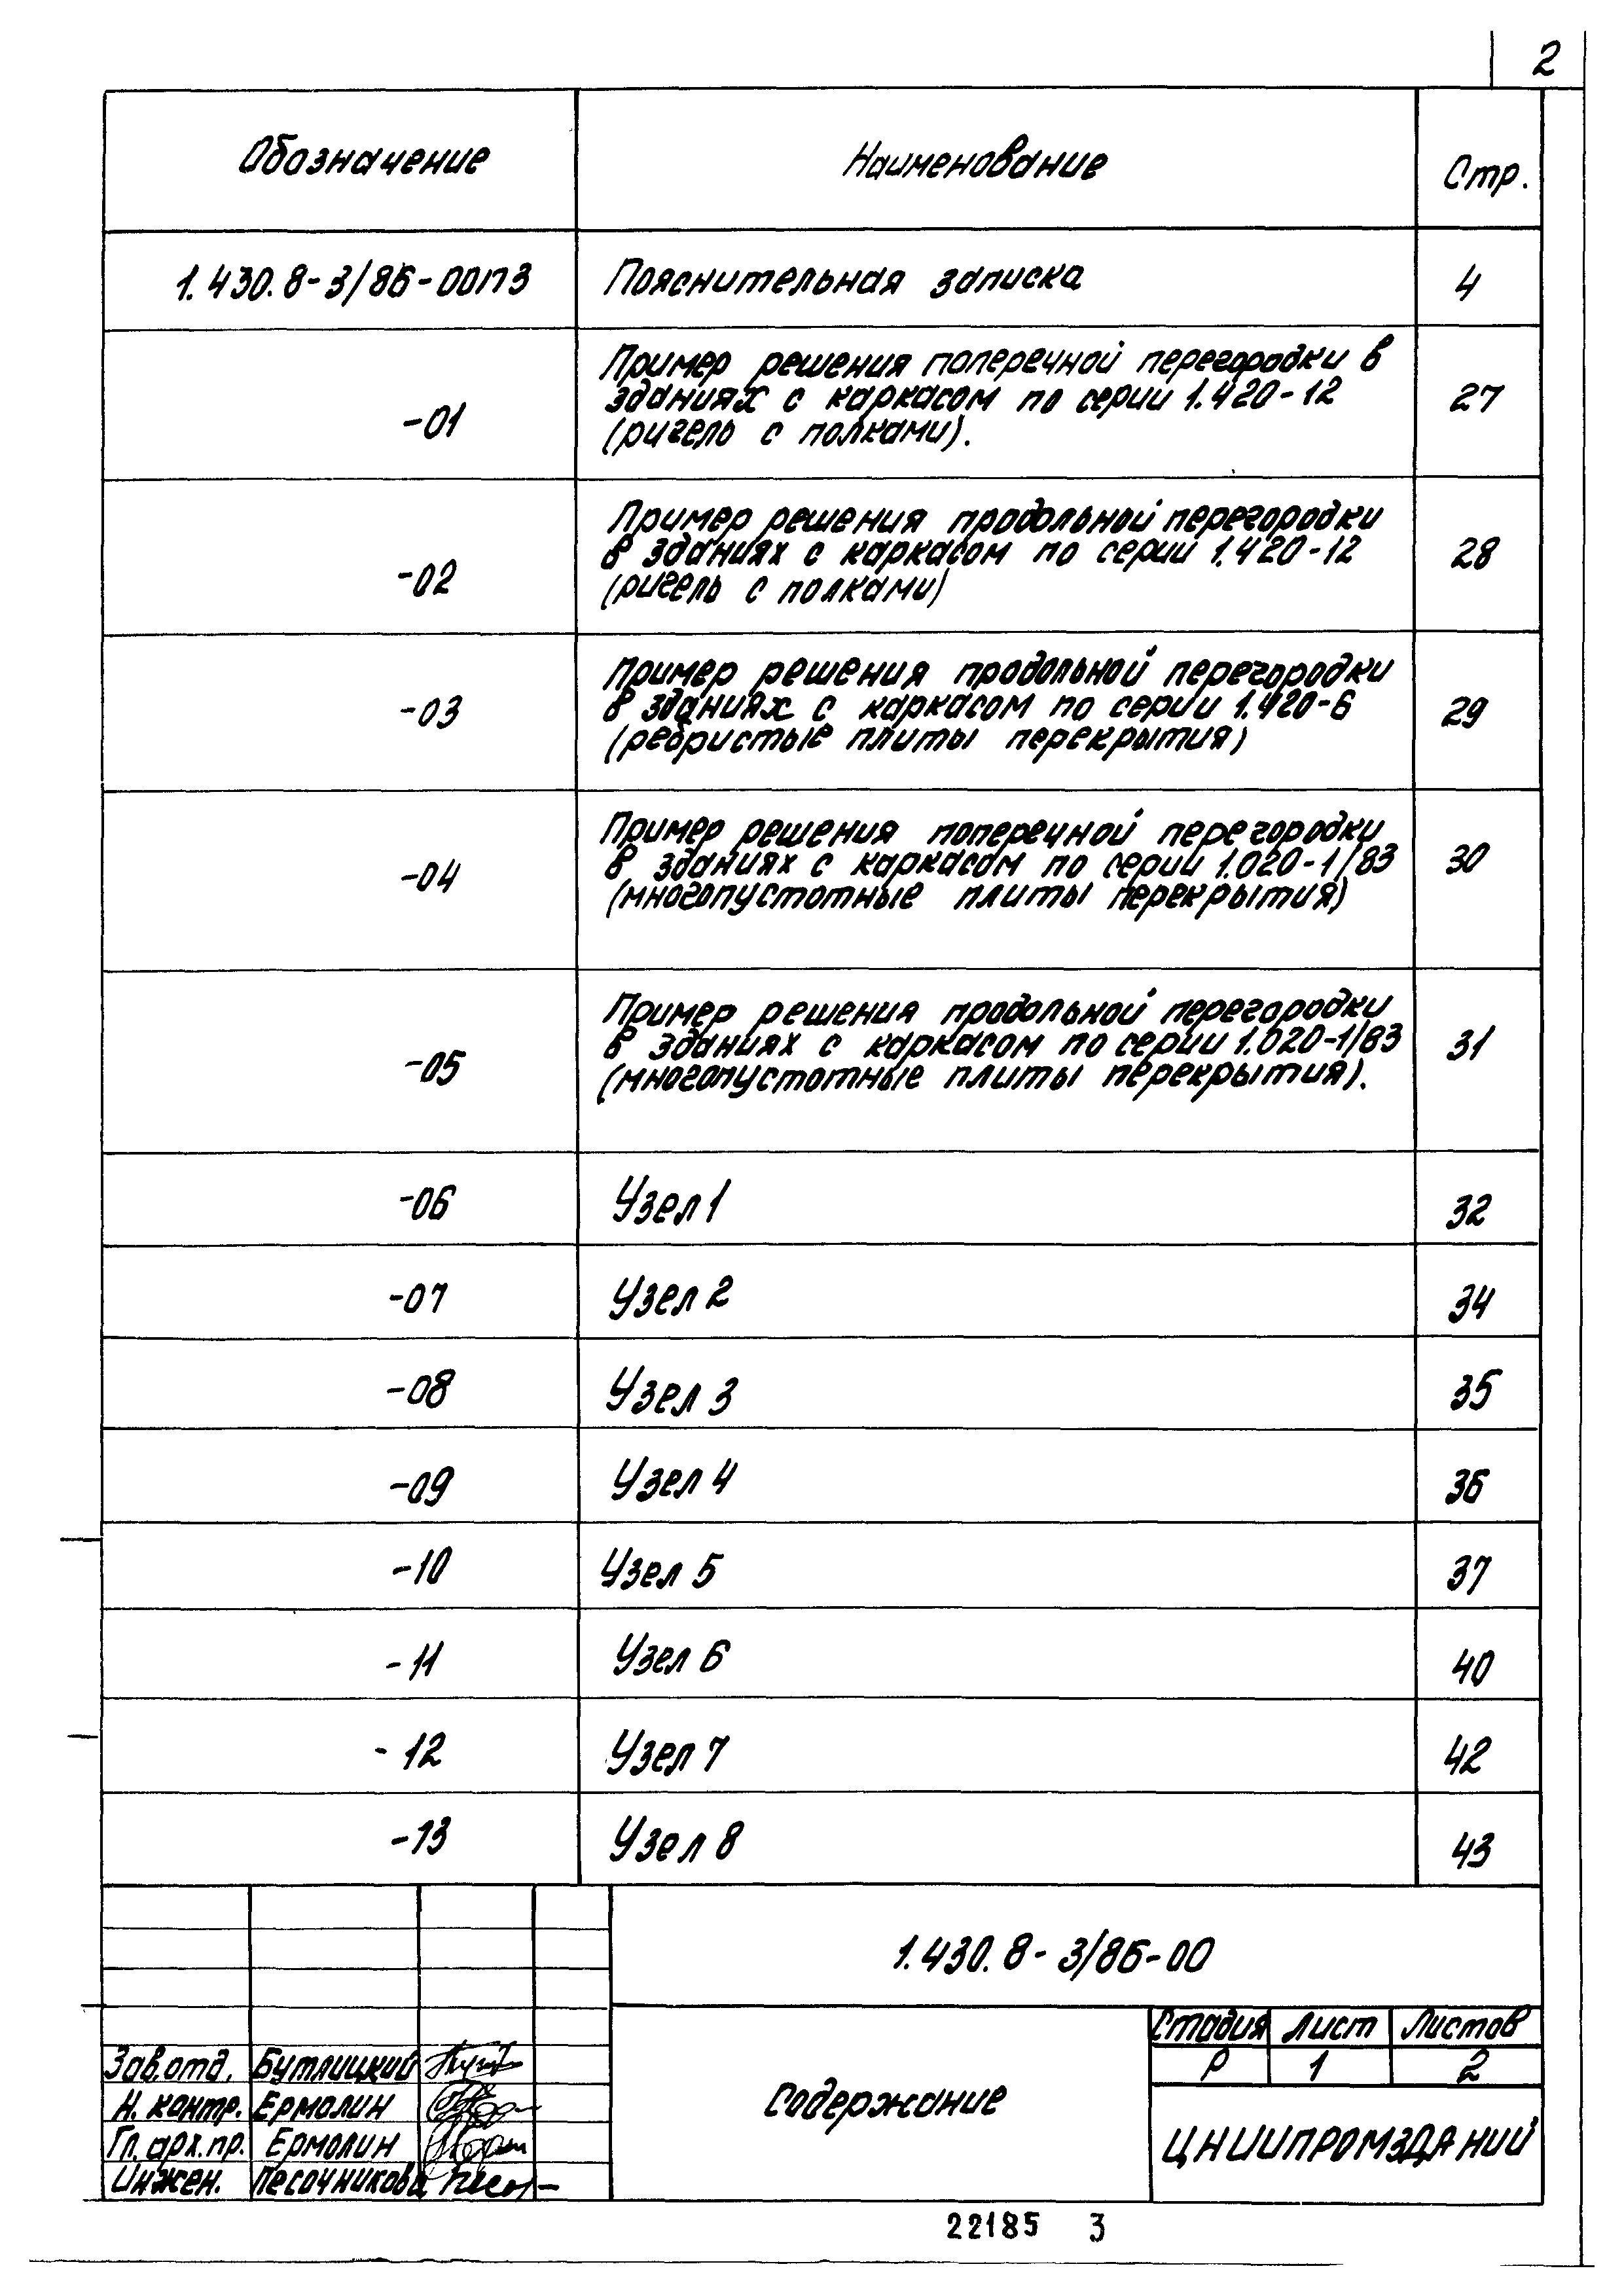 2
Обозначение Наименование Стр.
1.430.8-3/86-00ПЗ Пояснительная записка 4
-01 Пример решения поперечной перегородки в
зданиях с каркасом по серии 1.420-12 27
(ригель с полками).
-02 Пример решения продольной перегородки
в зданиях с каркасом по серии 1.420-12 28
(ригель с полками)
-03 Пример решения продольной перегородки
в зданиях с каркасом по серии 1.420-6 29
(ребристые плиты перекрытия)
-04 Пример решения поперечной перегородки
в зданиях с каркасом по серии 1.020-1/83 30
(многопустотные плиты перекрытия)
-05 Пример решения продольной перегородки
в зданиях с каркасом по серии 1.020-1/83 31
(многопустотные плиты перекрытия).
-06 Узел 1 32
-07 Узел 2 34
-08 Узел 3 35
-09 Узел 4 36
-10 Узел 5 37
-11 Узел 6 40
-12 Узел 7 42
-13 Узел 8 43
1.430.8-3/86-00
Стадия Лист Листов
Р 1 2
Зав.отд. Бутлицкий
Н. контр. Ермолин
Гл. арх. пр. Ермолин
Инжен. Песочникова
Содержание
ЦНИИПРОМЗДАНИЙ
22185 3